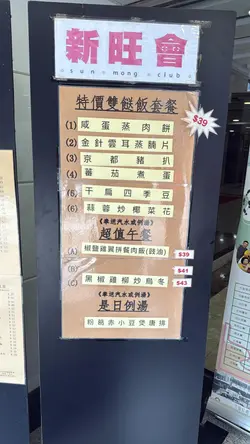 新旺會
sun mong club
特價雙餸飯套餐
$39
(1) 咸蛋蒸肉餅
(2) 金針雲耳蒸腩片
(3) 京都豬扒
(4) 蕃茄煮蛋
(5) 干扁四季豆
(6) 蒜蓉炒椰菜花
(奉送汽水或例湯)
超值午餐
(A) 椒鹽雞翼拼餐肉飯(豉油) $39
(B) $41
(C) 黑椒雞柳炒烏冬 $43
(奉送汽水或例湯)
是日例湯
粉葛赤小豆煲唐排